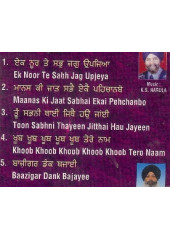 1. ਏਕ ਨੂਰ ਤੇ ਸਭੁ ਜਗੁ ਉਪਜਿਆ
Ek Noor Te Sabh Jag Upjeya
2. ਮਾਨਸ ਕੀ ਜਾਤ ਸਭੈ ਏਕੈ ਪਹਿਚਾਨਬੋ
Maanas Ki Jaat Sabhai Ekai Pehchanbo
3. ਤੂੰ ਸਭਨੀ ਥਾਈ ਜਿਥੈ ਹਉਂ ਜਾਈ
Toon Sabhni Thayeen Jitthai Hau Jayeen
4. ਖੂਬ ਖੂਬ ਖੂਬ ਖੂਬ ਖੂਬ ਤੇਰੋ ਨਾਮ
Khoob Khoob Khoob Khoob Khoob Tero Naam
5. ਬਾਜ਼ੀਗਰ ਡੰਕ ਬਜਾਈ
Baazigar Dank Bajayee
Music:
K.S. NARULA